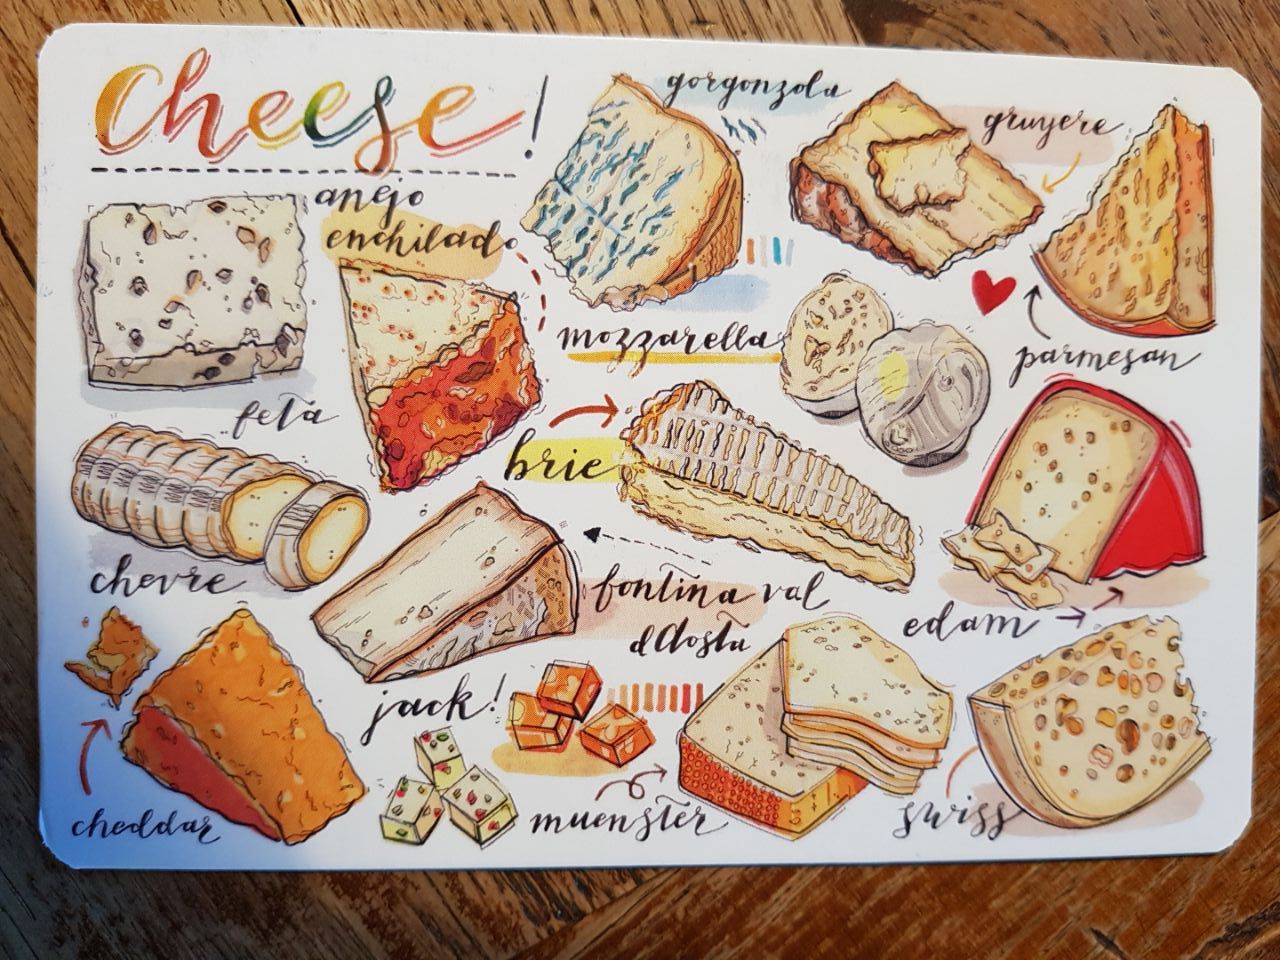 Cheese!
gorgonzola
gruyere
anejo
enchilado
mozzarella
parmesan
feta
brie
chevre
fontina val
d'Aosta
edam
jack!
cheddar
muenster
swiss